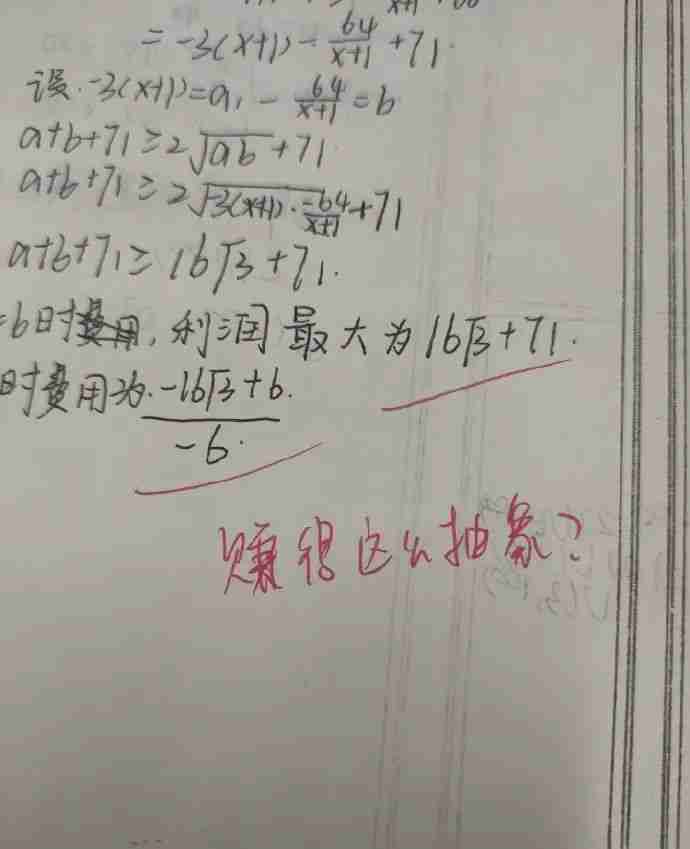 = -3(x+1) - \frac{64}{x+1} + 71.
设 -3(x+1)=a, -\frac{64}{x+1}=b
a+b+71≥2\sqrt{ab}+71.
a+b+71≥2\sqrt{-3(x+1)·\frac{-64}{x+1}}+71
a+b+71≥16√3+71.
=b时费用, 利润最大为16√3+71.
时费用为.\frac{-16√3+6.}{-6.}
赚得这么抽象?